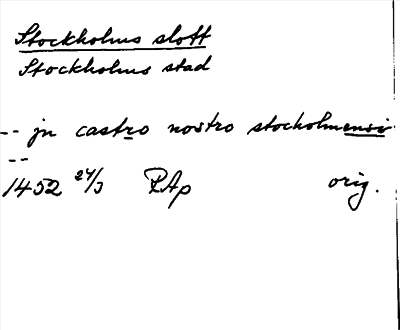 Stockholms slott
Stockholms stad
-- jn castro nostro stocholmensi
--
1452 24/3 RAp orig.